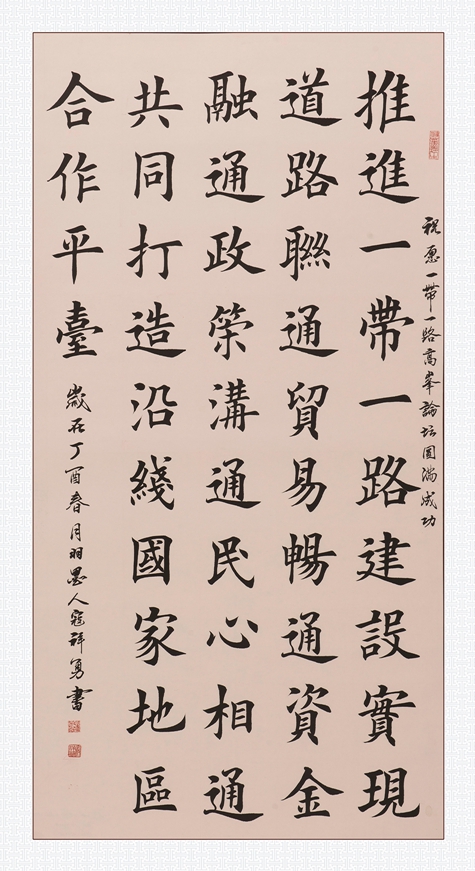 祝愿一帶一路高峯論坛圓滿成功
推進一帶一路建設實現
道路聯通貿易暢通資金
融通政策溝通民心相通
共同打造沿綫國家地區
合作平臺
歲在丁酉春月羽墨人寇祥勇書